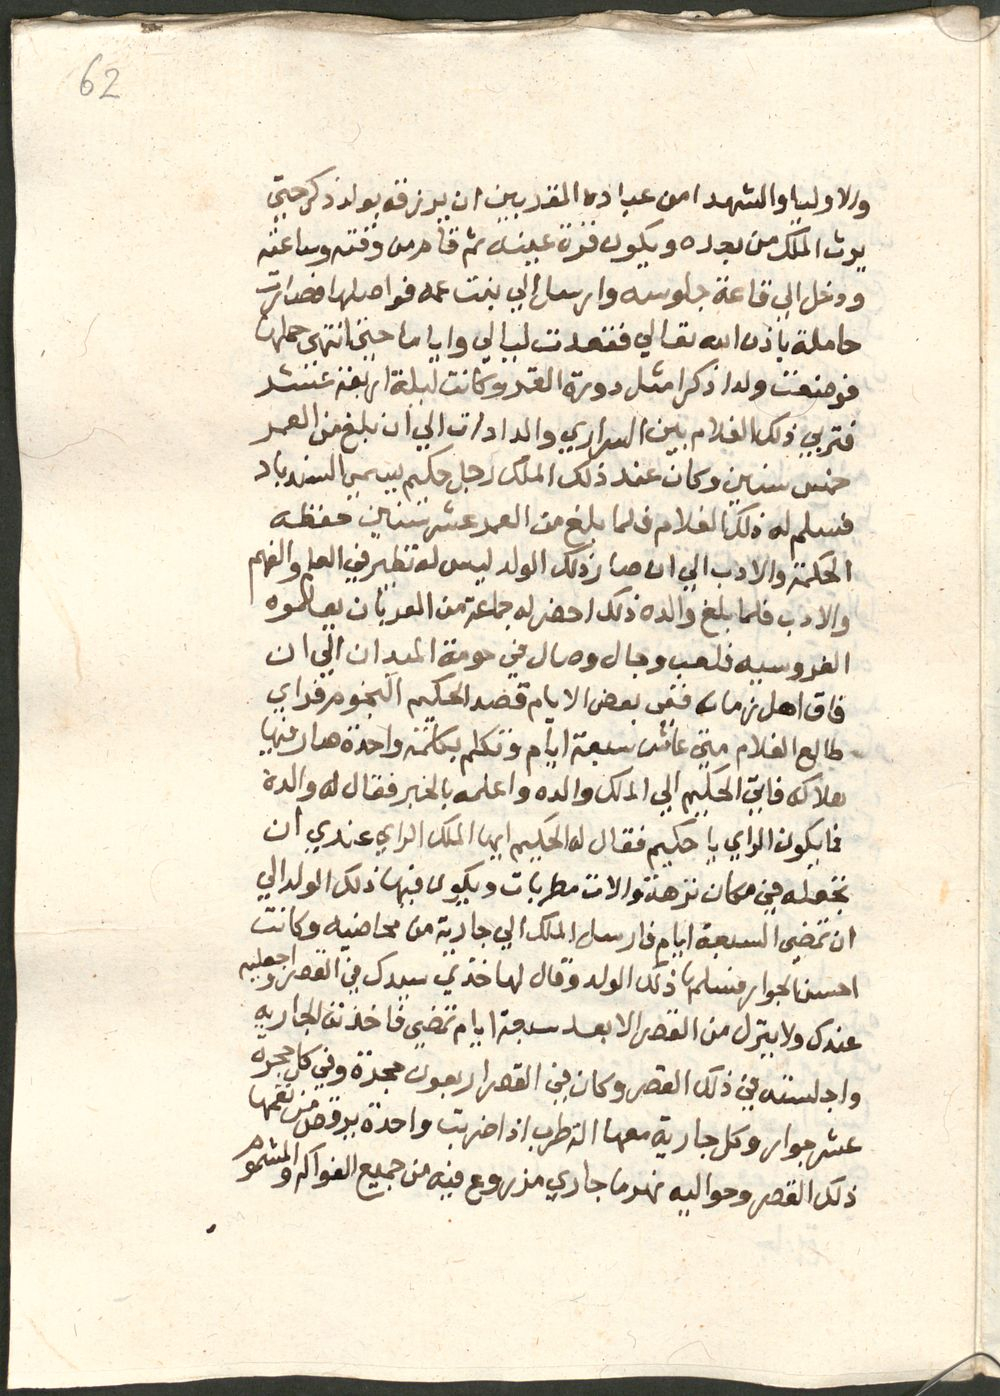 62
والاوليا والشهدا من عباده المقربين ان يرزقه بولد ذكر حتي
يرث الملك من بعده ويكون قرة عينه ثم قام من وقته وساعته
ودخل الي قاعة جلوسه وارسل الي بنت عمه فواصلها فصارت
حاملة باذن الله تعالي فقعدت ليالي واياما حتي انتهى حملها
فوضعت ولدا ذكرا مثل دورة القمر وكانت ليلة اربعة عشر
فتربي ذلك الغلام بين السراري والدادات الي ان بلغ من العمر
خمس سنين وكان عند ذلك الملك رجل حكيم يسمي السندباد
فسلم له ذلك الغلام فلما بلغ من العمر عشر سنين حفظه
الحكمة والادب الي ان صار ذلك الولد ليس له نظير في العلم والفهم
والادب فلما بلغ والده ذلك احضر له جماعة من العربان يعالموه
الفروسيه فلعب وجال وصال في حومة الميدان الي ان
فاق اهل زمانه ففي بعض الايام قصد الحكيم النجوم فراي
طالع الغلام متي عاش سبعة ايام وتكلم بكلمة واحدة صار فيها
هلاكه فاتي الحكيم الي الملك والده واعلمه بالخبر فقال له والدة
فايكون الراي يا حكيم فقال له الحكيم ايها الملك الراي عندي ان
تجعله في مكان نزهة والات مطربات ويكون فيها ذلك الولد الي
ان تمضي السبعة ايام فارسل الملك الي جارية من محاضيه وكانت
احسن الجوار فسلمها ذلك الولد وقال لها خذي سيدك في القصر واجعليه
عندك ولا ينزل من القصر الا بعد سبعة ايام تمضي فاخذته الجاريه
واجلسته في ذلك القصر وكان في القصر اربعون حجرة وفي كل حجرة
عشر جوار وكل جارية معها الة طرب اذا ضربت واحدة يرقص من نغمها
ذلك القصر وحواليه نهر ما جاري مزروع فيه من جميع الفواكه والمشموم